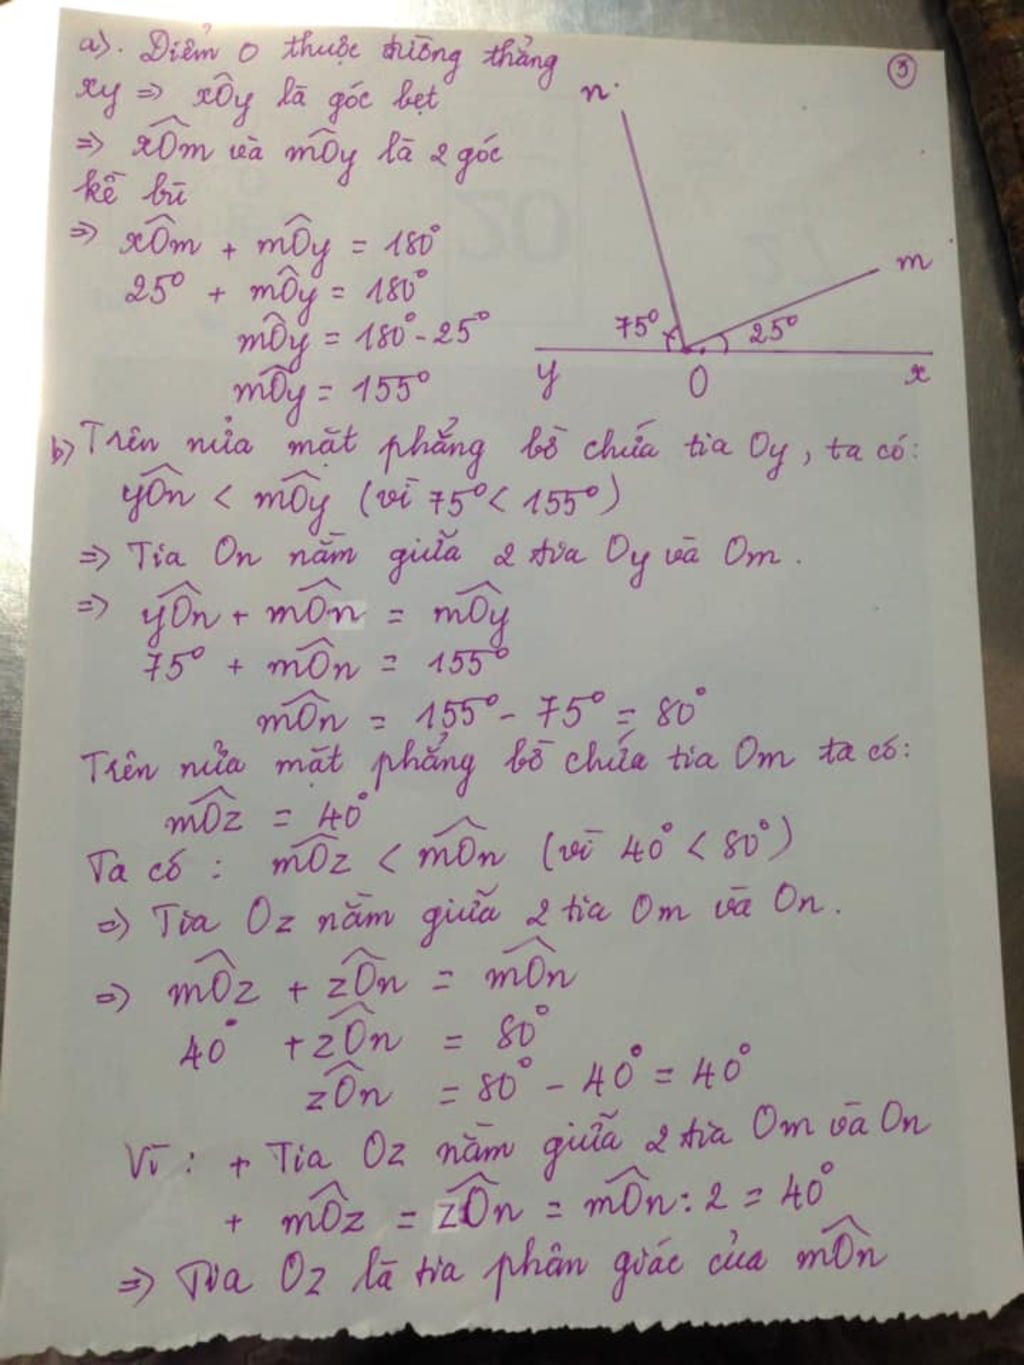 a). Điểm O thuộc đường thẳng
xy => xÔy là góc bẹt
=> xÔm và mÔy là 2 góc
kề bù
=> xÔm + mÔy = 180°
25° + mÔy = 180°
mÔy = 180° - 25°
mÔy = 155°
③
n
m
75°
25°
y
O
x
b) Trên nửa mặt phẳng bờ chứa tia Oy, ta có:
yÔn < mÔy (vì 75° < 155°)
=> Tia On nằm giữa 2 tia Oy và Om.
=> yÔn + mÔn = mÔy
75° + mÔn = 155°
mÔn = 155° - 75° = 80°
Trên nửa mặt phẳng bờ chứa tia Om ta có:
mÔz = 40°
Ta có : mÔz < mÔn (vì 40° < 80°)
=> Tia Oz nằm giữa 2 tia Om và On.
=> mÔz + zÔn = mÔn
40° + zÔn = 80°
zÔn = 80° - 40° = 40°
Vì : + Tia Oz nằm giữa 2 tia Om và On
+ mÔz = zÔn = mÔn : 2 = 40°
=> Tia Oz là tia phân giác của mÔn